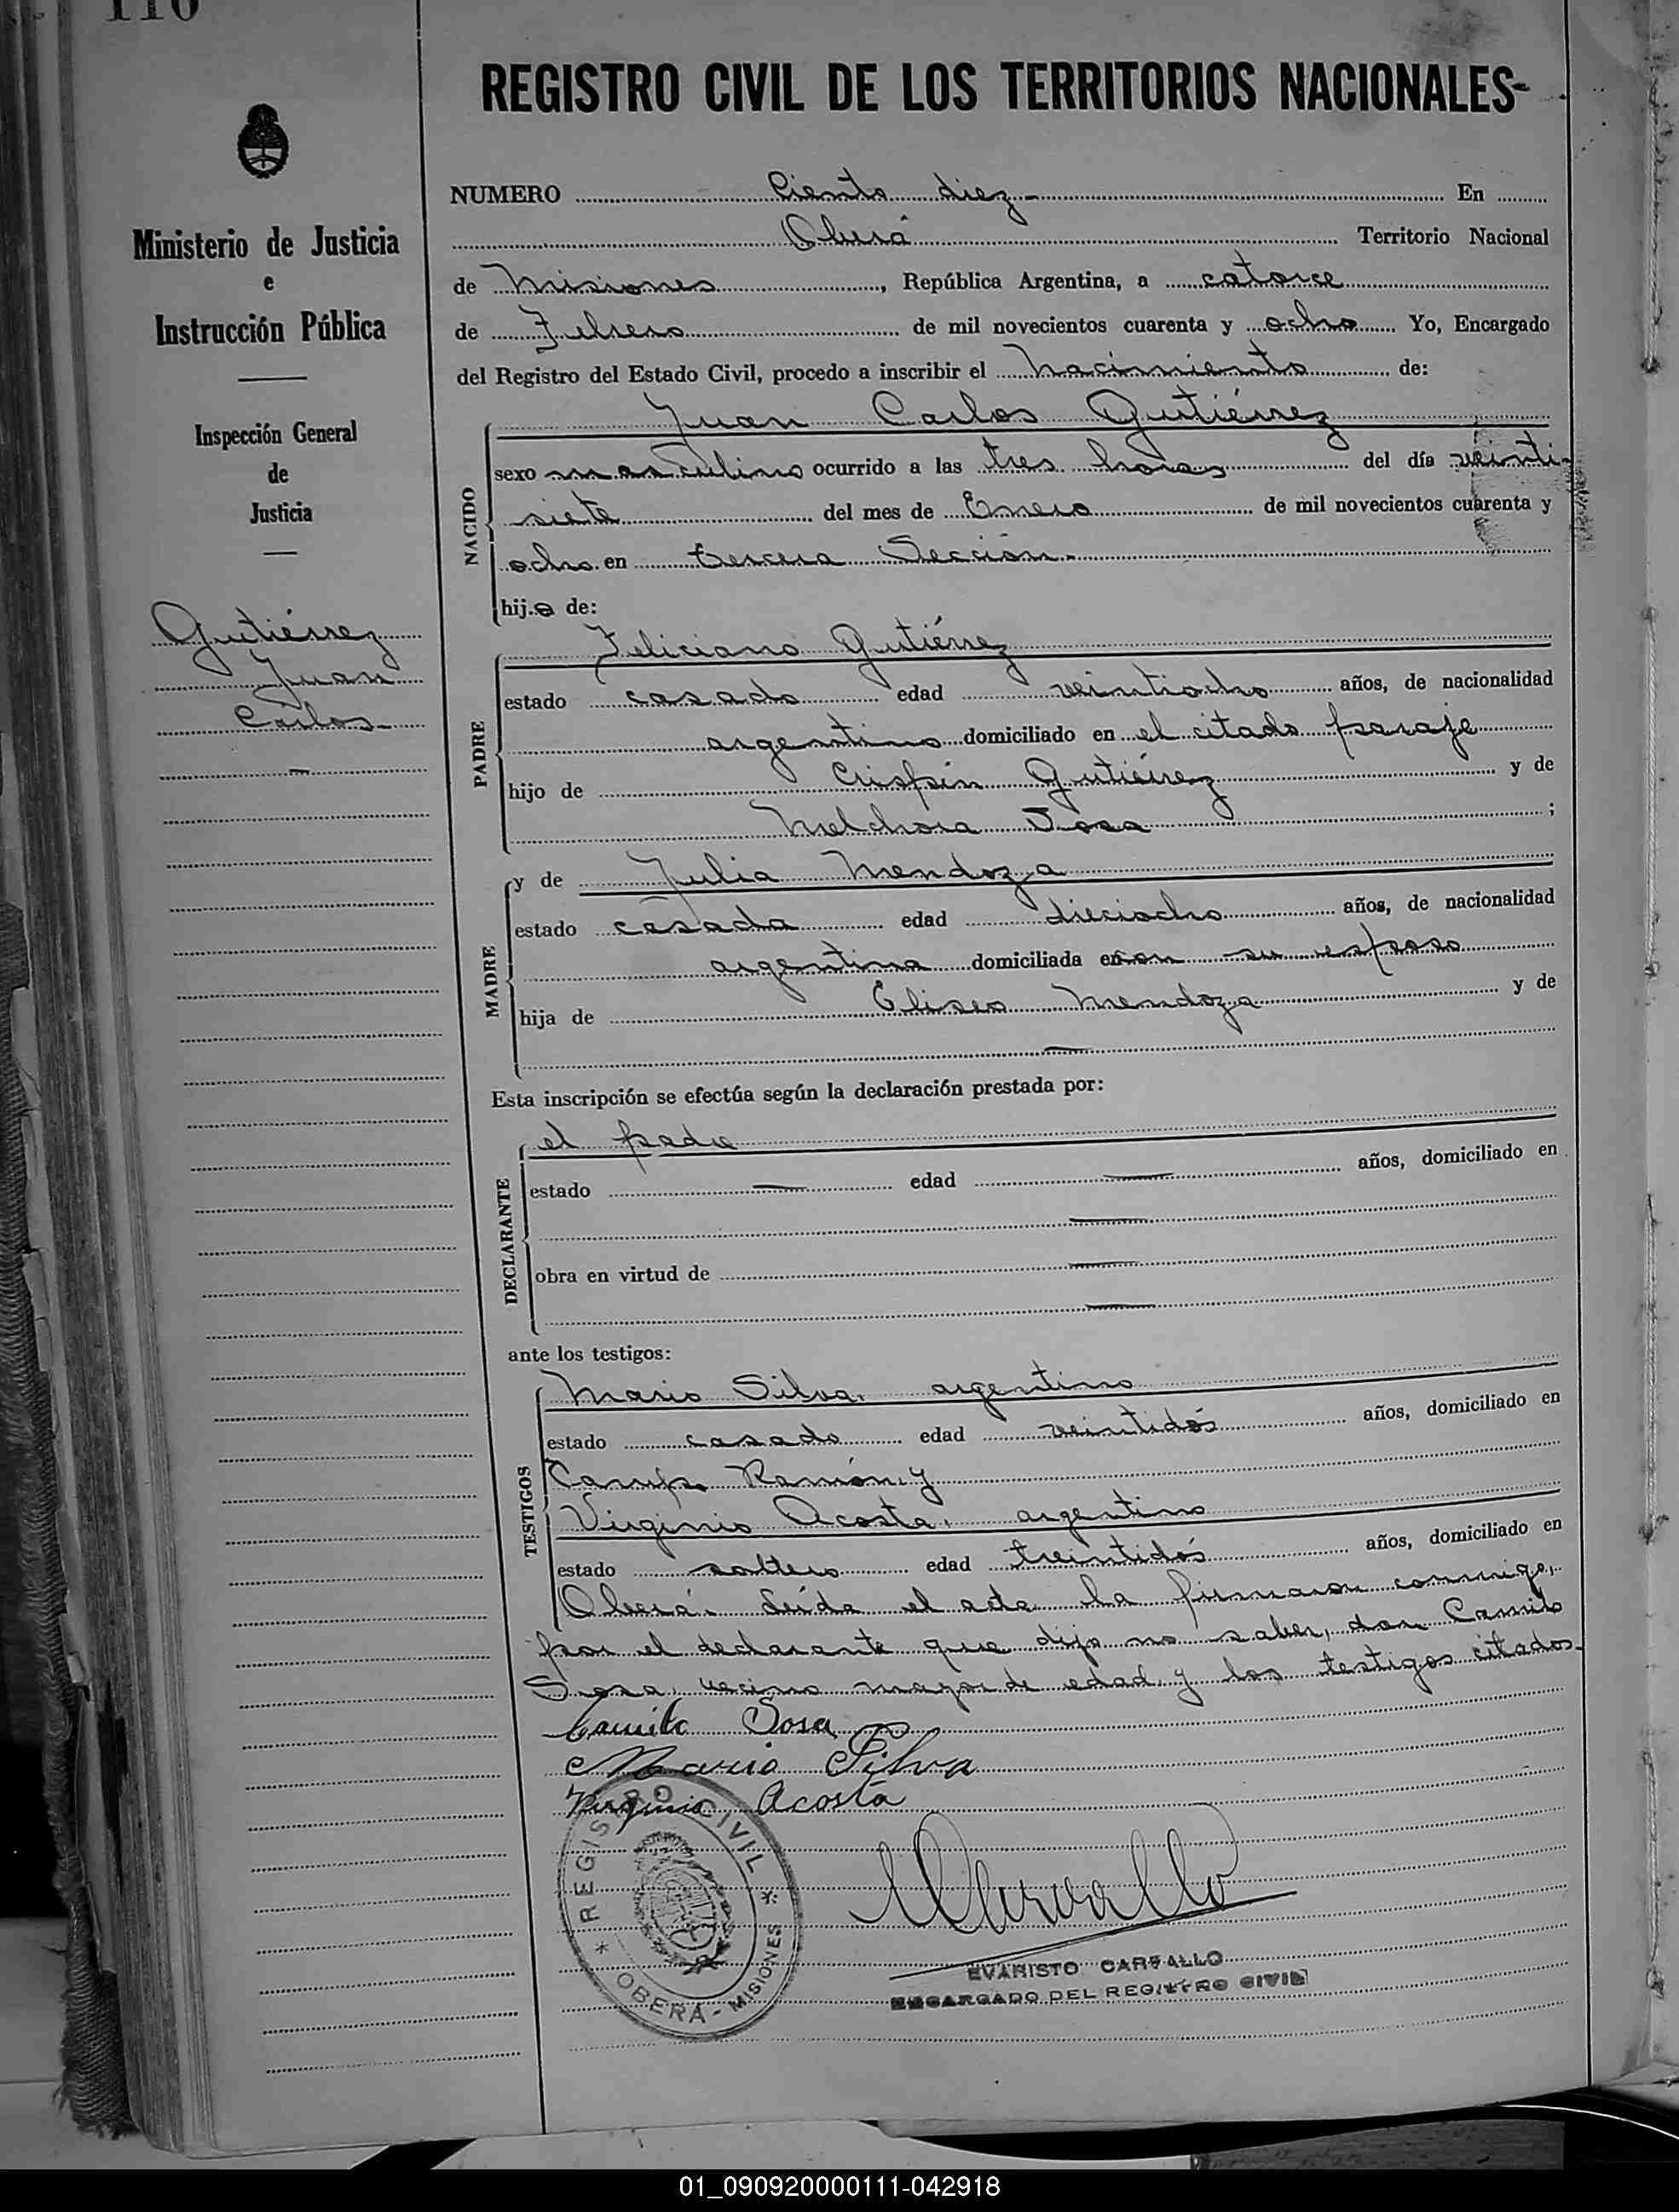 110
REGISTRO CIVIL DE LOS TERRITORIOS NACIONALES
Ministerio de Justicia
e
Instrucción Pública
Inspección General
de
Justicia
Gutiérrez
Juan
Carlos
NUMERO Ciento diez En
Oberá Territorio Nacional
de Misiones, República Argentina, a catorce
de Febrero de mil novecientos cuarenta y ocho Yo, Encargado
del Registro del Estado Civil, procedo a inscribir el nacimiento de:
Juan Carlos Gutiérrez
NACIDO
sexo masculino ocurrido a las tres horas del día veinti-
siete del mes de Enero de mil novecientos cuarenta y
ocho en tercera Sección.-
hijo de:
PADRE
Feliciano Gutiérrez
estado casado edad veintiocho años, de nacionalidad
argentino domiciliado en el citado paraje
hijo de Crispín Gutiérrez y de
Melchora Sosa ;
MADRE
y de Julia Mendoza
estado casada edad dieciocho años, de nacionalidad
argentina domiciliada con su esposo
hija de Eliseo Mendoza y de
—
Esta inscripción se efectúa según la declaración prestada por:
DECLARANTE
el padre
estado — edad — años, domiciliado en
—
obra en virtud de —
—
ante los testigos:
TESTIGOS
Mario Silva, argentino
estado casado edad veintidós años, domiciliado en
Campo Ramón, y
Virginio Acosta, argentino
estado soltero edad treintidós años, domiciliado en
Oberá. Leída el acta la firmaron conmigo,
por el declarante que dijo no saber, don Camilo
Sosa, vecino mayor de edad, y los testigos citados.-
Camilo Sosa
Mario Silva
Virginio Acosta
REGISTRO CIVIL
OBERÁ - MISIONES
EVARISTO CARVALLO
ENCARGADO DEL REGISTRO CIVIL
01_090920000111-042918